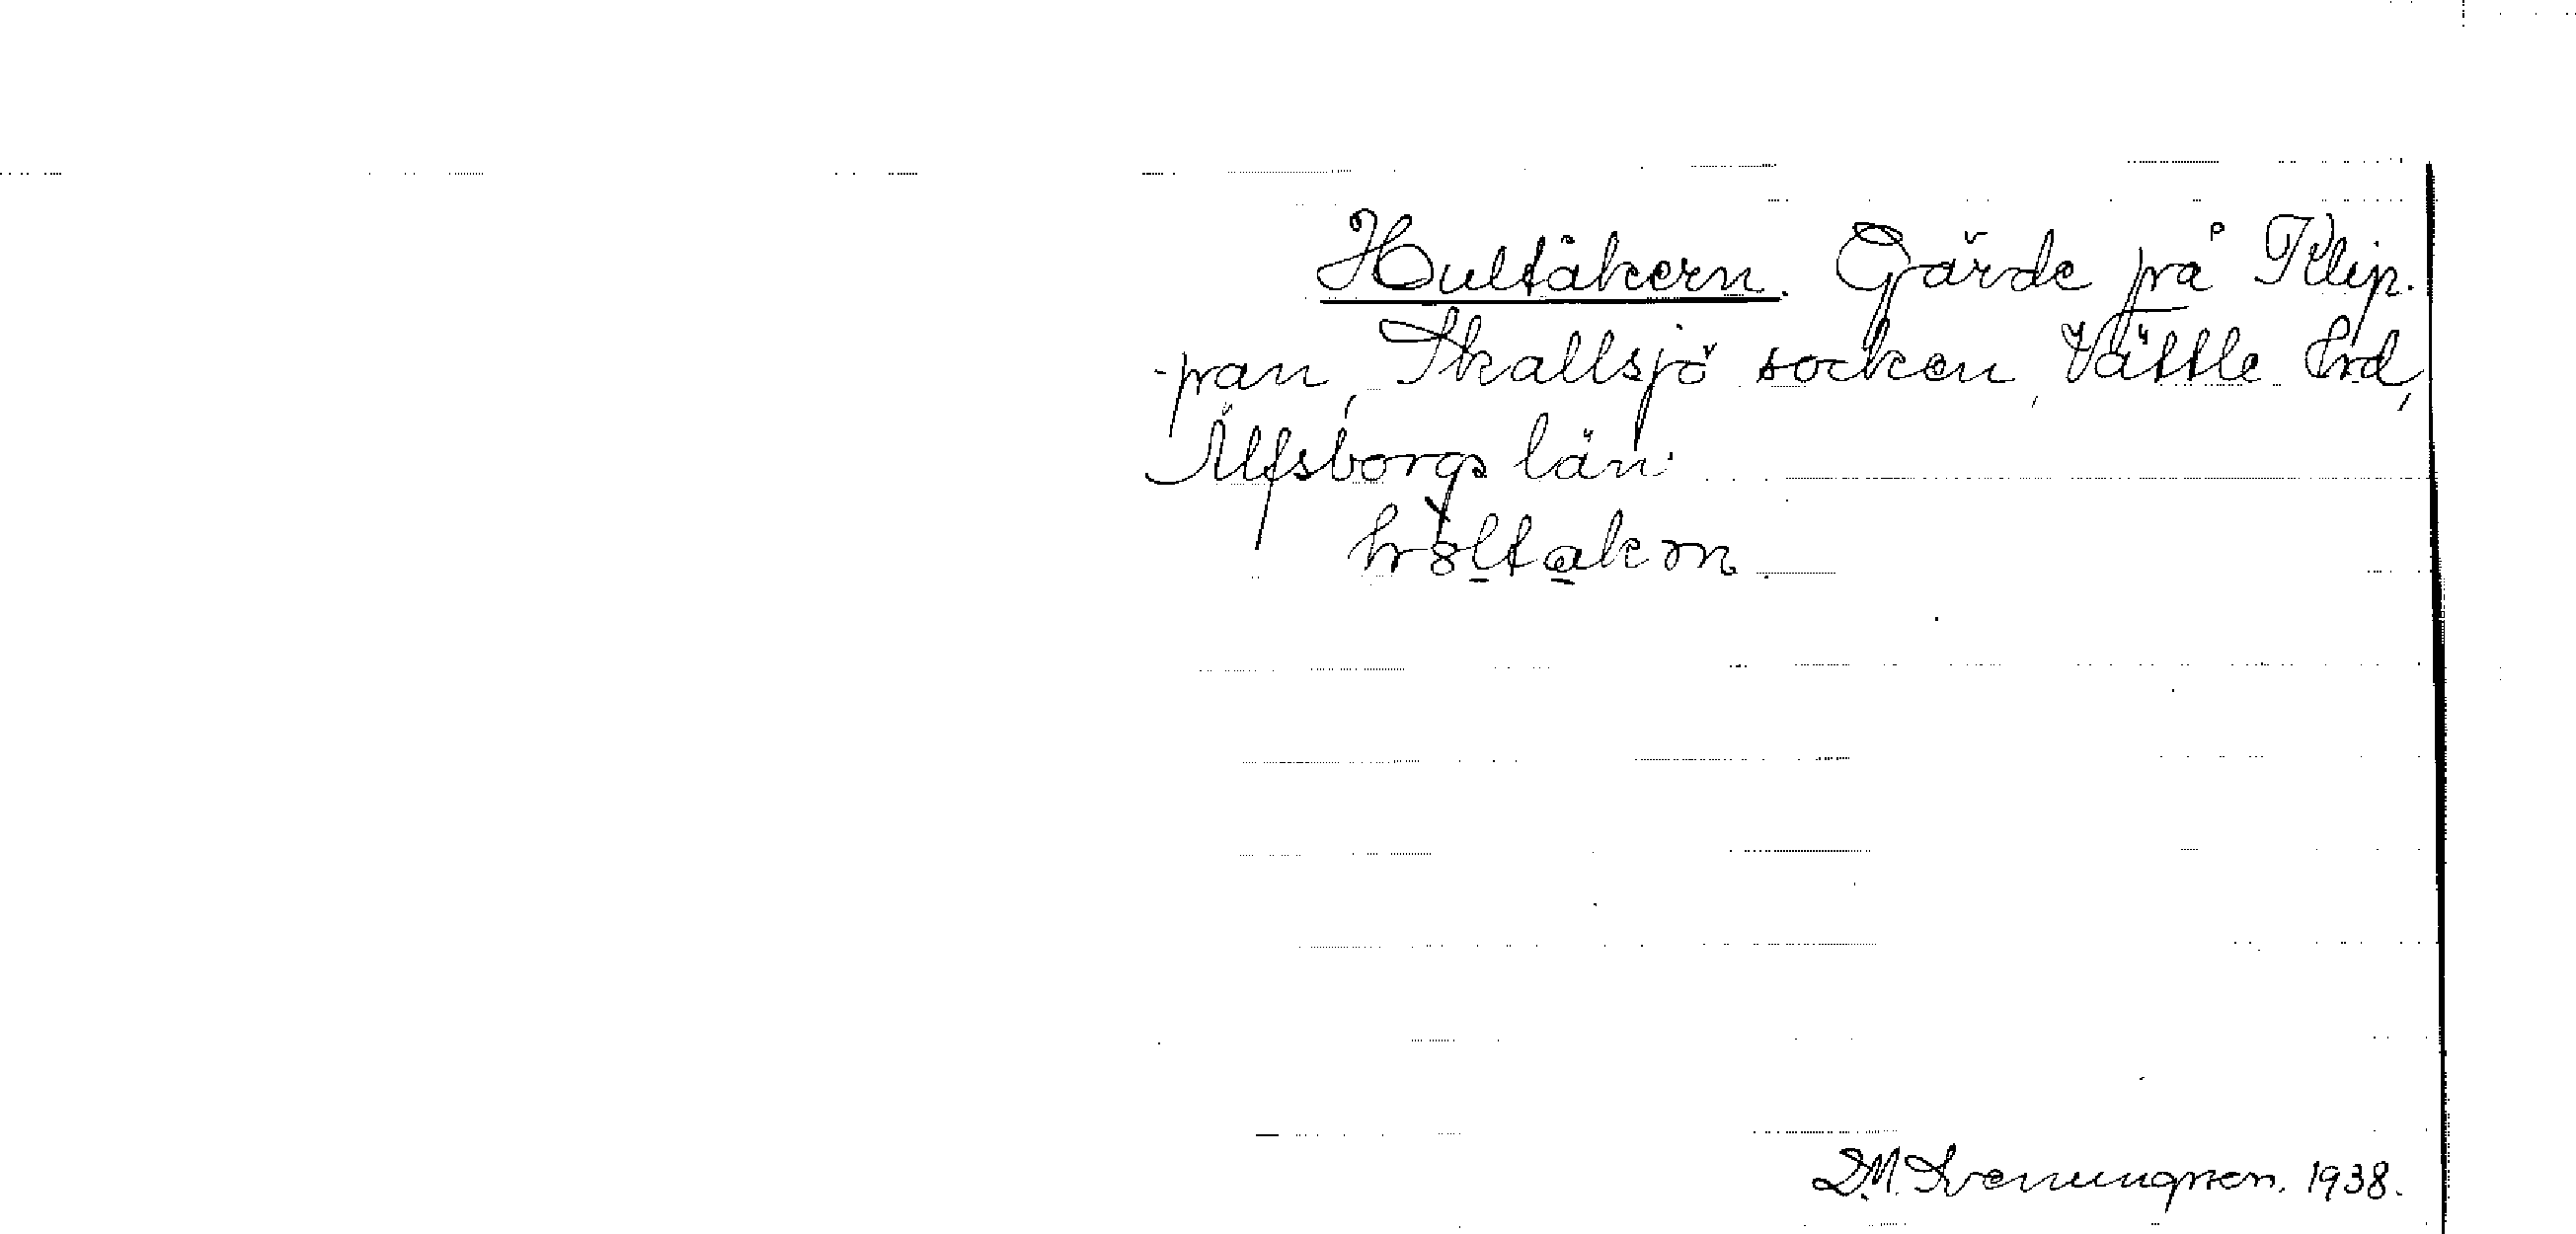 Hultåkern. Gärde på Klip-
pan, Skallsjö socken, Vättle hrd,
Älfsborgs län.
D.M. Svenningson. 1938.